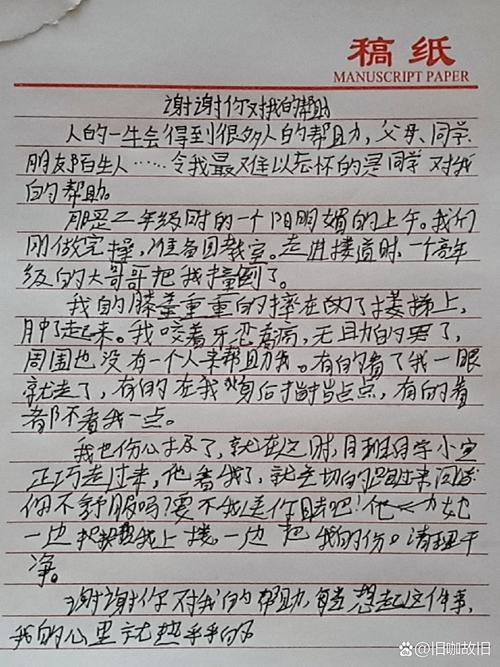 稿纸
MANUSCRIPT PAPER
谢谢你对我的帮助
人的一生会得到很多人的帮助,父母、同学、
朋友陌生人……令我最难以忘怀的是同学对我
的帮助。
那是二年级时的一个阳明媚的上午。我们
刚做完操,准备回教室。走进楼道时,一个高年
级的大哥哥把我撞倒了。
我的膝盖重重的摔在的了楼梯上,
肿了起来。我咬着牙忍着痛,无助的哭了,
周围也没有一个人来帮助我。有的看了我一眼
就走了,有的在我背后指指点点,有的看
都不看我一点。
我也伤心极了,就在这时,同班同学小
正巧走过来,他看我了,就关切的跑过来问:
你不舒服吗?要不我送你吧!他
一边扶我上楼,一边把我的伤口清理干
净。
谢谢你对我的帮助,每当想起这件事,
我的心里就热乎乎的
旧咖故旧